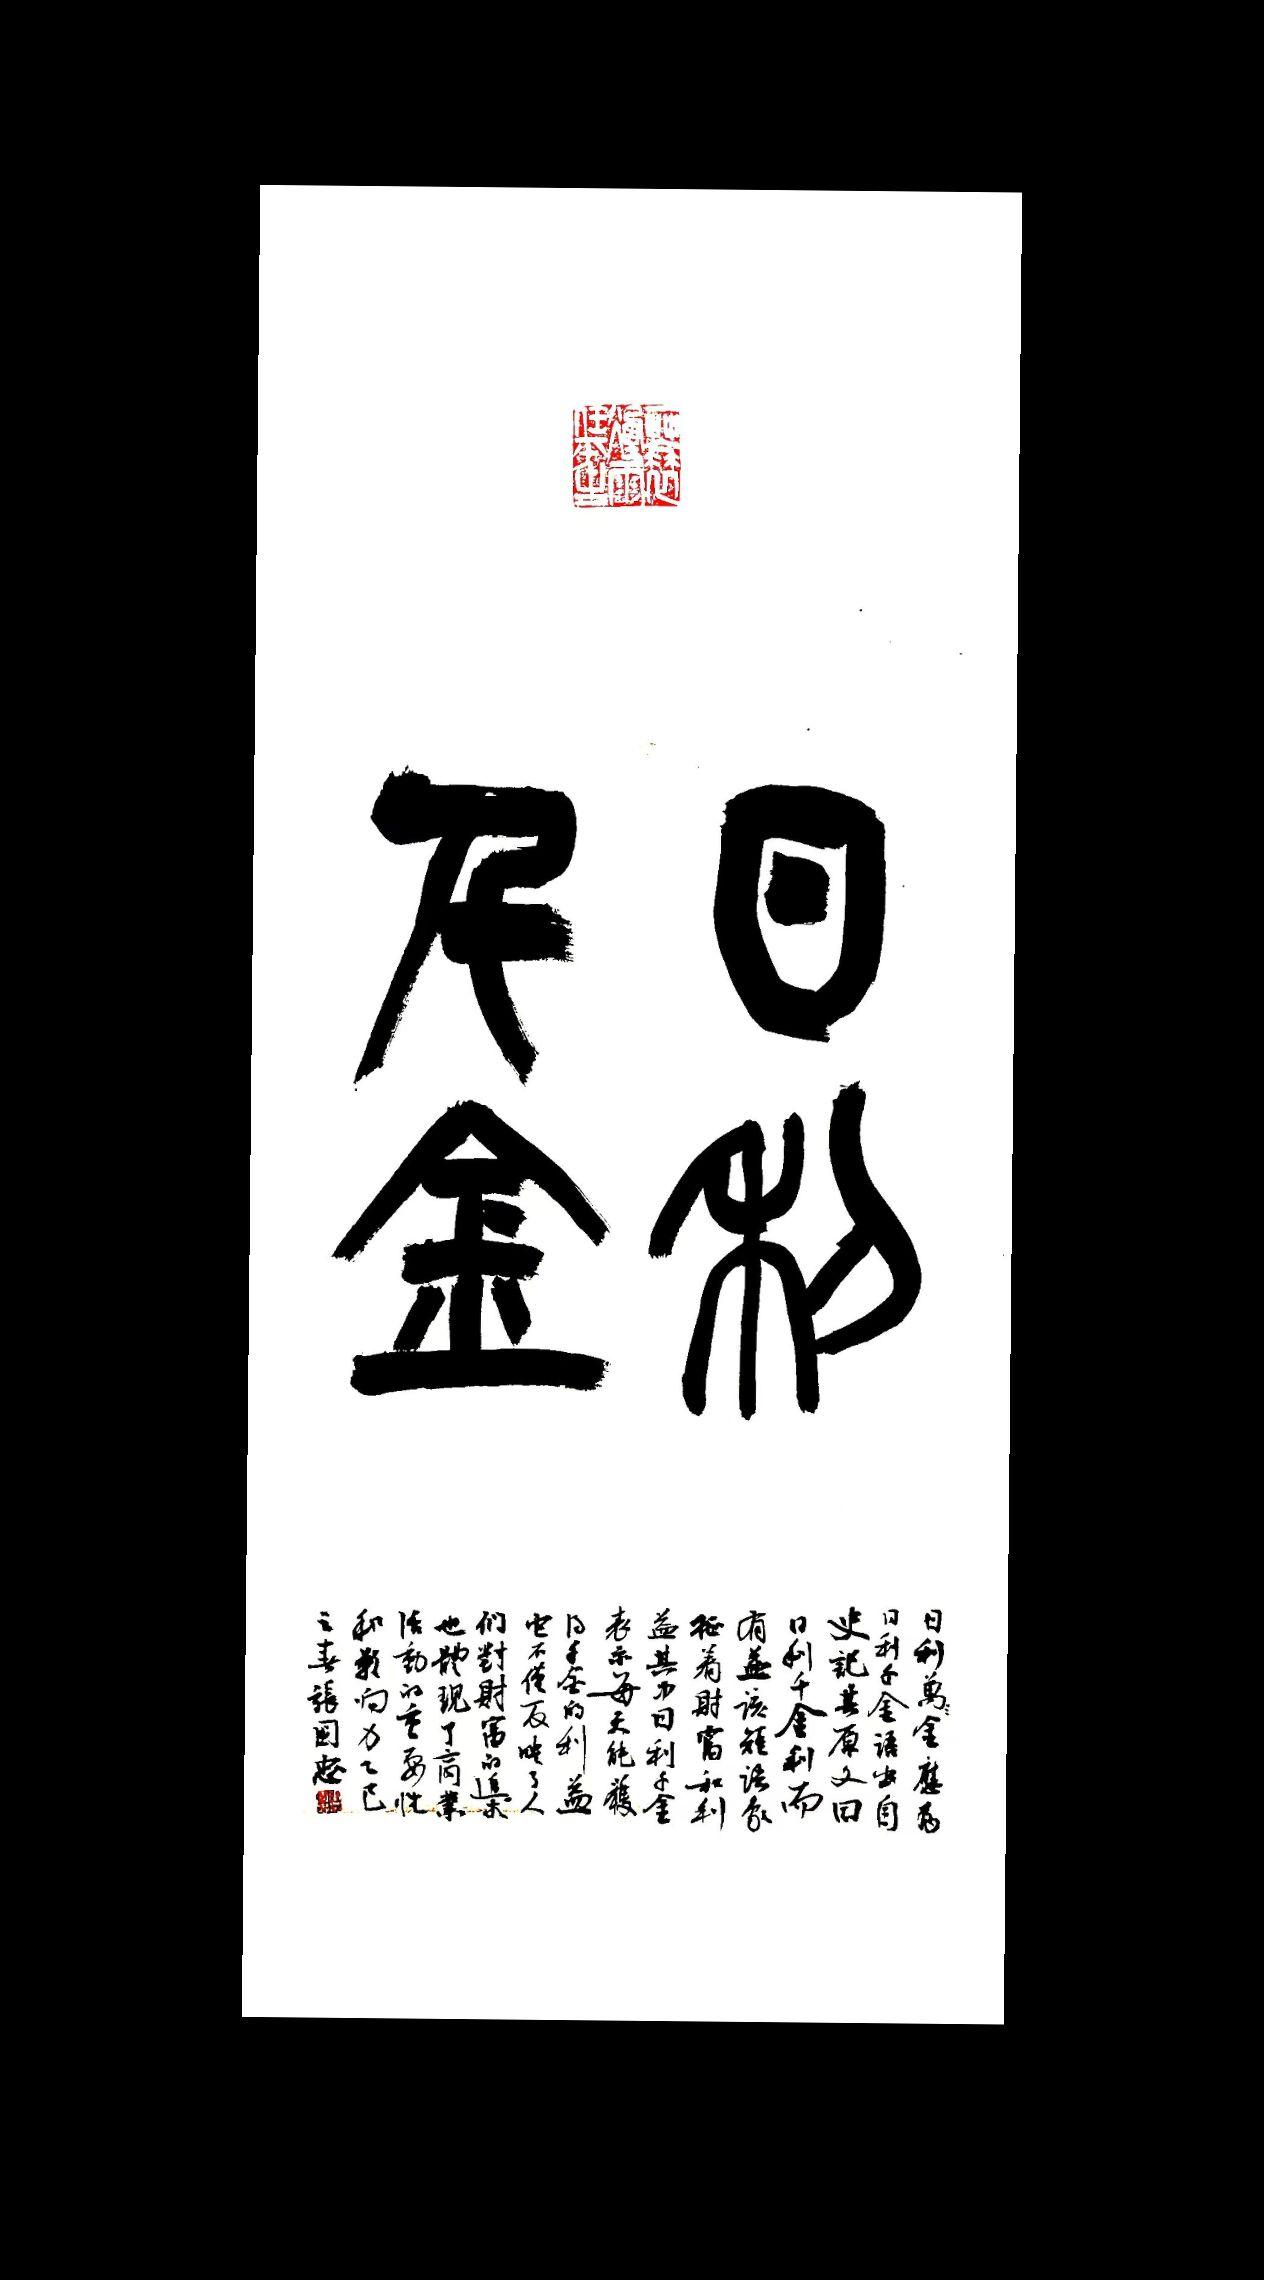 日利
万金
日利萬金應為
日利千金語出自
史記其原文曰
日利千金利而
有益該短語象
征着財富和利
益其中日利千金
表示每天能獲
得千金的利益
它不僅反映了人
们對財富的追求
也體現了商業
活動的重要性
和影响力乙巳
之春張国